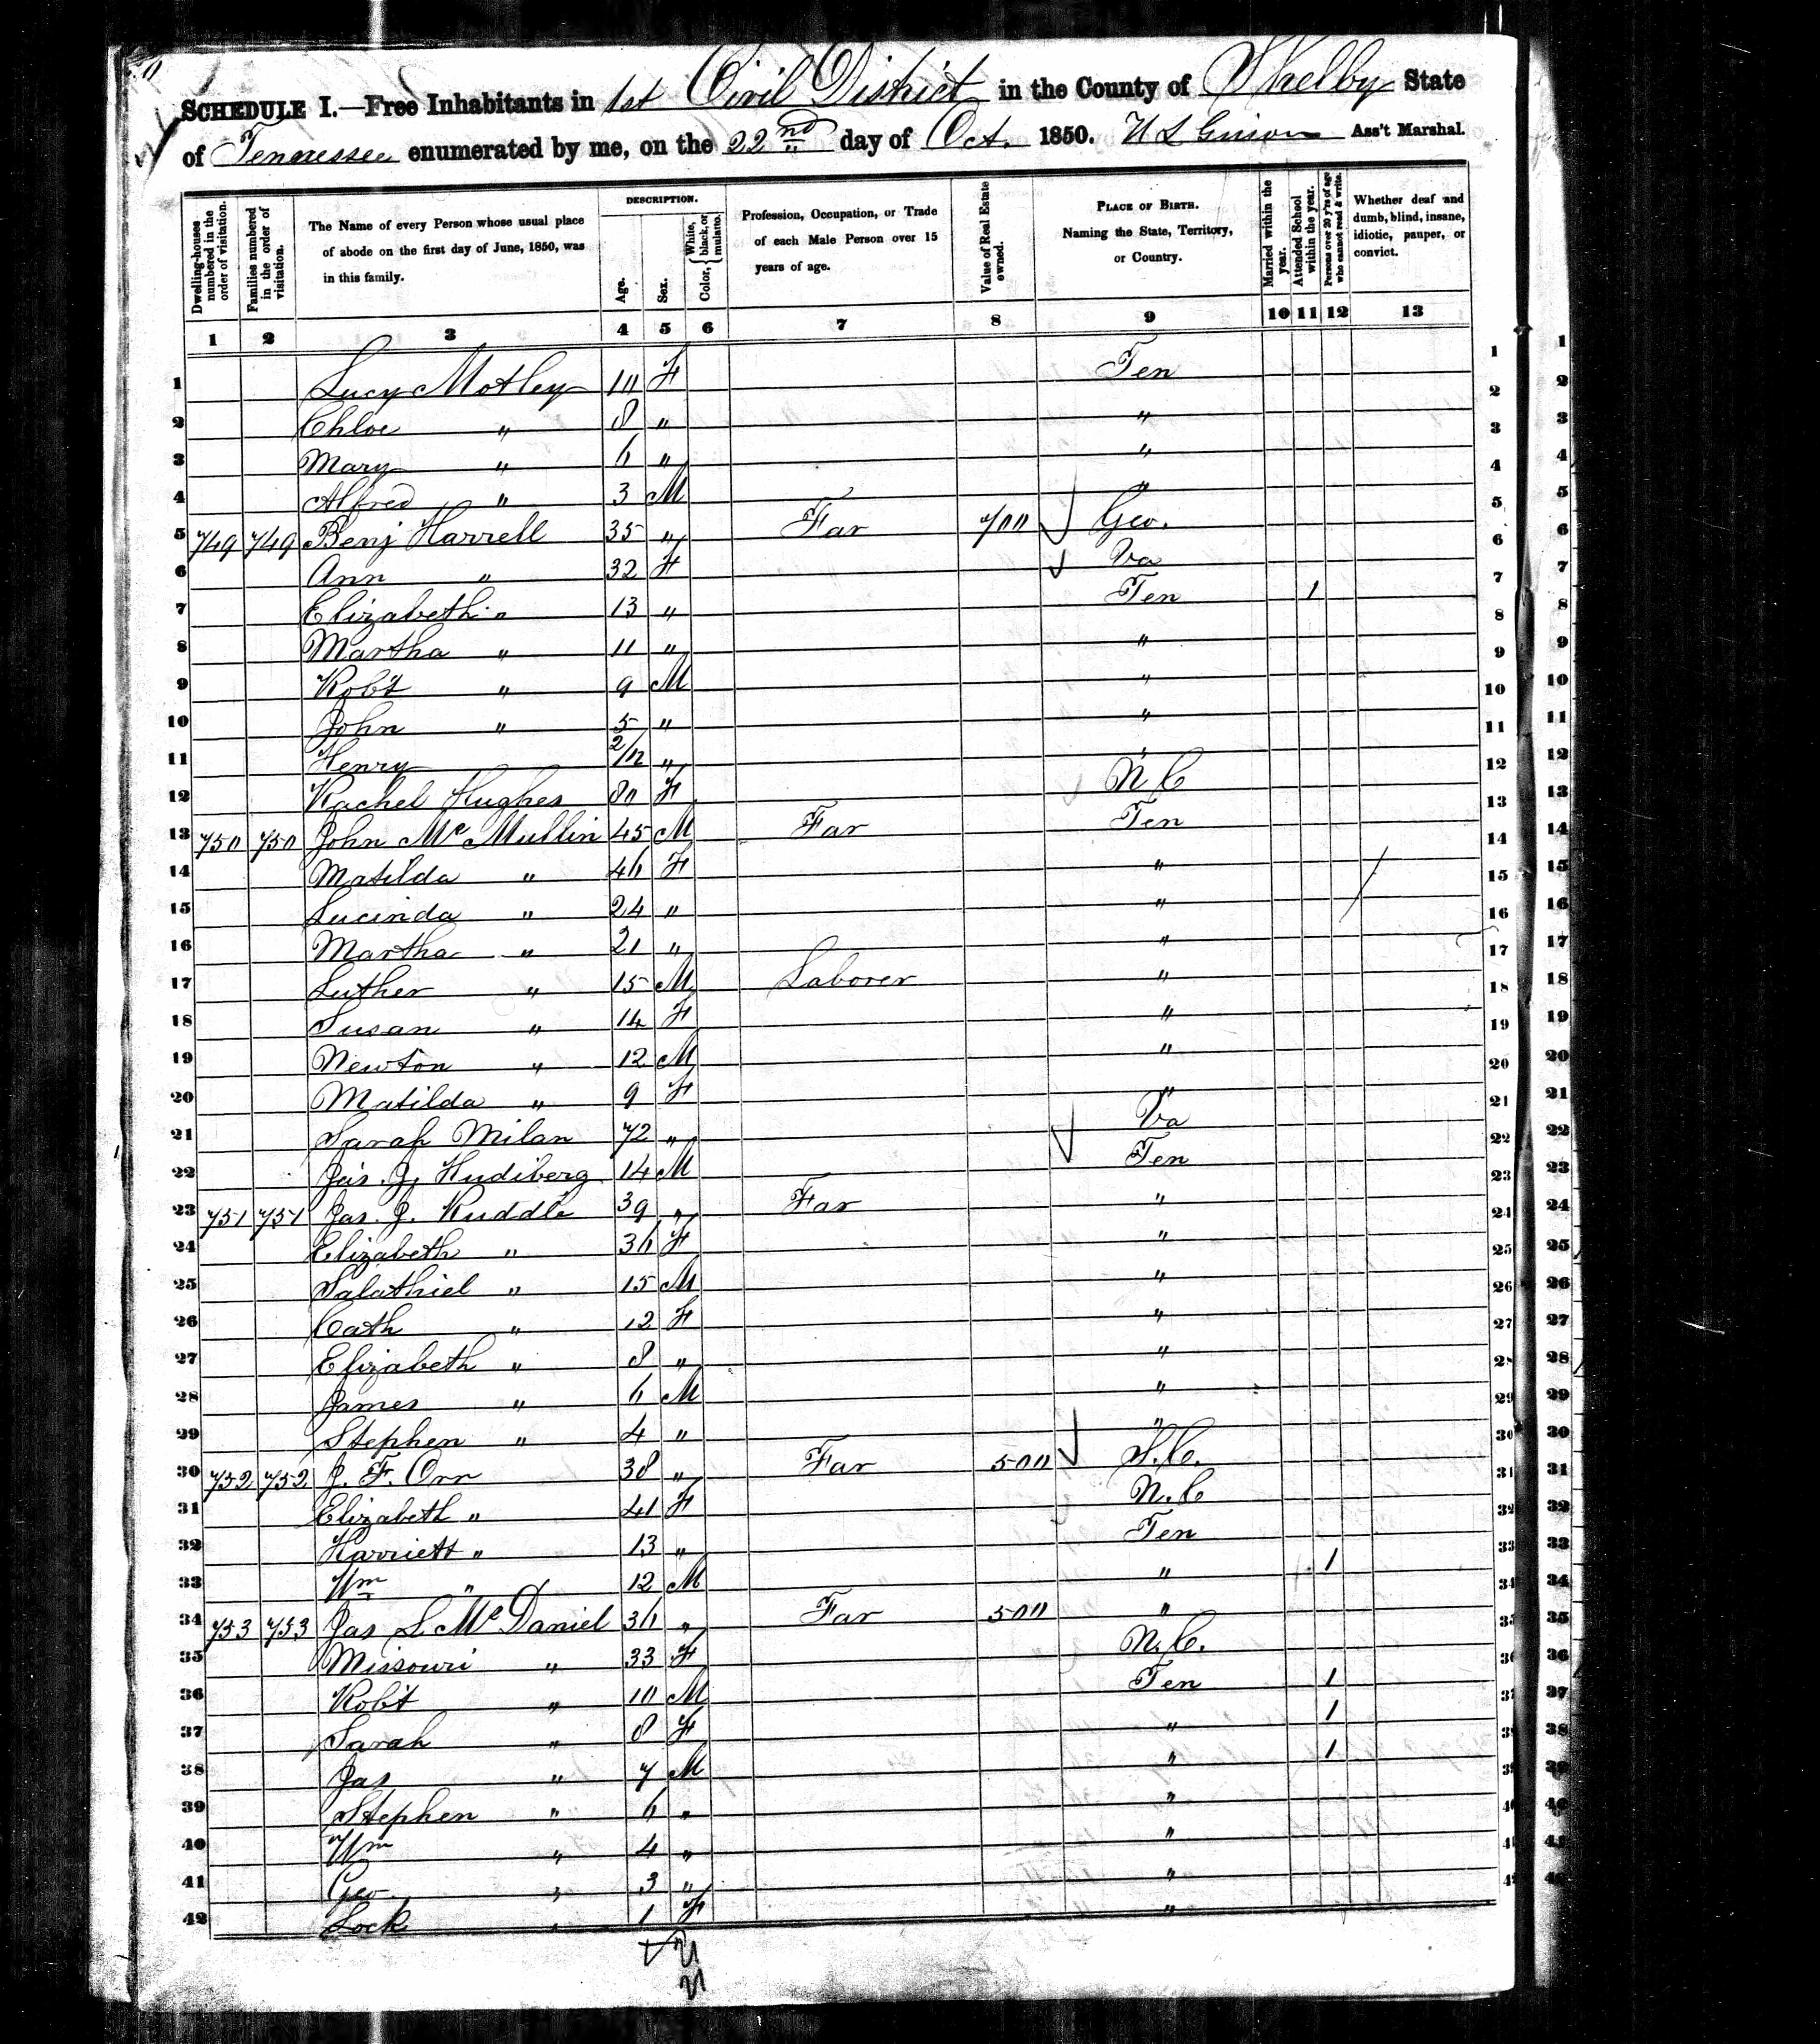 SCHEDULE I.—Free Inhabitants in 1st Civil District in the County of Shelby State
of Tennessee enumerated by me, on the 22nd day of Oct. 1850. Ass't Marshal.
Dwelling-houses numbered in the order of visitation.
Families numbered in the order of visitation.
The Name of every Person whose usual place of abode on the first day of June, 1850, was in this family.
DESCRIPTION.
Age.
Sex.
Color, White, black, or mulatto.
Profession, Occupation, or Trade of each Male Person over 15 years of age.
Value of Real Estate owned.
PLACE OF BIRTH. Naming the State, Territory, or Country.
Married within the year.
Attended School within the year.
Persons over 20 y'rs of age who cannot read & write.
Whether deaf and dumb, blind, insane, idiotic, pauper, or convict.
1 2 3 4 5 6 7 8 9 10 11 12 13
1 Lucy Motley 10 F Ten 1
2 Chloe " 8 " " 2
3 Mary " 6 " " 3
4 Alfred " 3 M " 4
5 749 749 Benj Harrell 35 " Far 700 Geo. 5
6 Ann " 32 F Va 6
7 Elizabeth " 13 " Ten 1 7
8 Martha " 11 " " 8
9 Robt " 9 M " 9
10 John " 5 " " 10
11 Henry 2/12 " " 11
12 Rachel Hughes 80 F N C 12
13 750 750 John McMullin 45 M Far Ten 13
14 Matilda " 46 F " 14
15 Lucinda " 24 " " 15
16 Martha " 21 " " 16
17 Luther " 15 M Laborer " 17
18 Susan " 14 F " 18
19 Newton " 12 M " 19
20 Matilda " 9 F " 20
21 Sarah Milan 72 " Va 21
22 Jas. J. Hudiberg 14 M Ten 22
23 751 751 Jas. J. Ruddle 39 " Far " 23
24 Elizabeth " 36 F " 24
25 Salathiel " 15 M " 25
26 Cath " 12 F " 26
27 Elizabeth " 8 " " 27
28 James " 6 M " 28
29 Stephen " 4 " " 29
30 752 752 J. F. Orr 38 " Far 500 S.C. 30
31 Elizabeth " 41 F N.C 31
32 Harriett " 13 " Ten 32
33 Wm " 12 M " 1 33
34 753 753 Jas L McDaniel 36 " Far 500 " 34
35 Missouri " 33 F N.C. 35
36 Robt " 10 M Ten 1 36
37 Sarah " 8 F " 1
38 Jas " 7 M " 1
39 Stephen " 6 " "
40 Wm " 4 " "
41 Geo " 3 " "
42 Lock " 1 F "